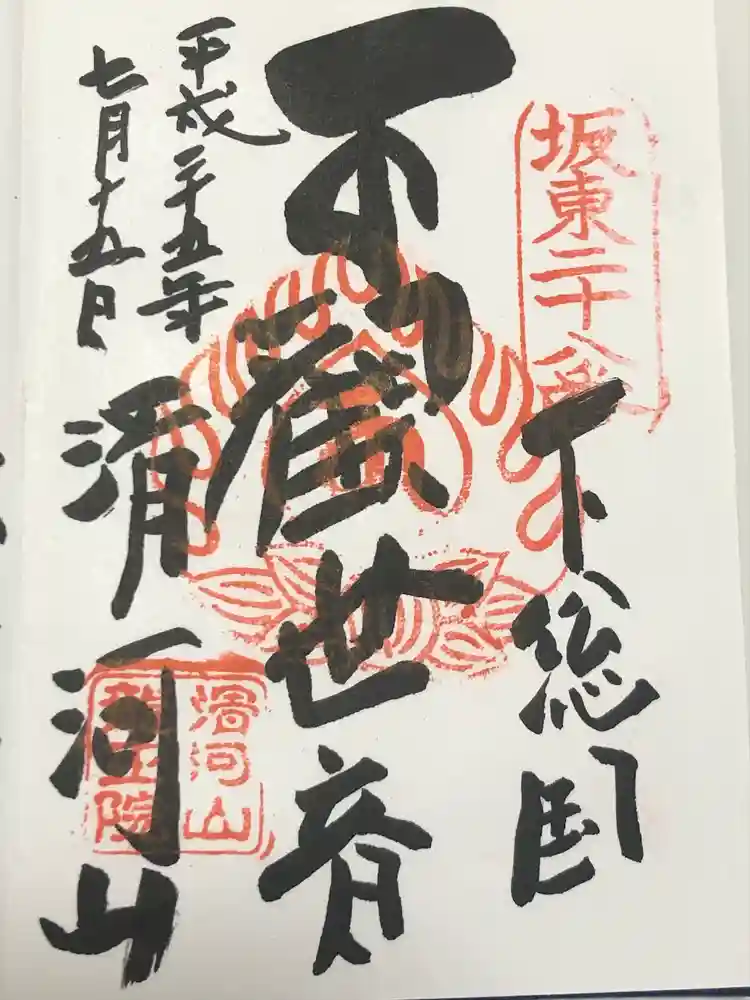 坂東二十八番
下総国
観世音
平成二十五年
七月十五日
滑河山
滑河山
龍正院